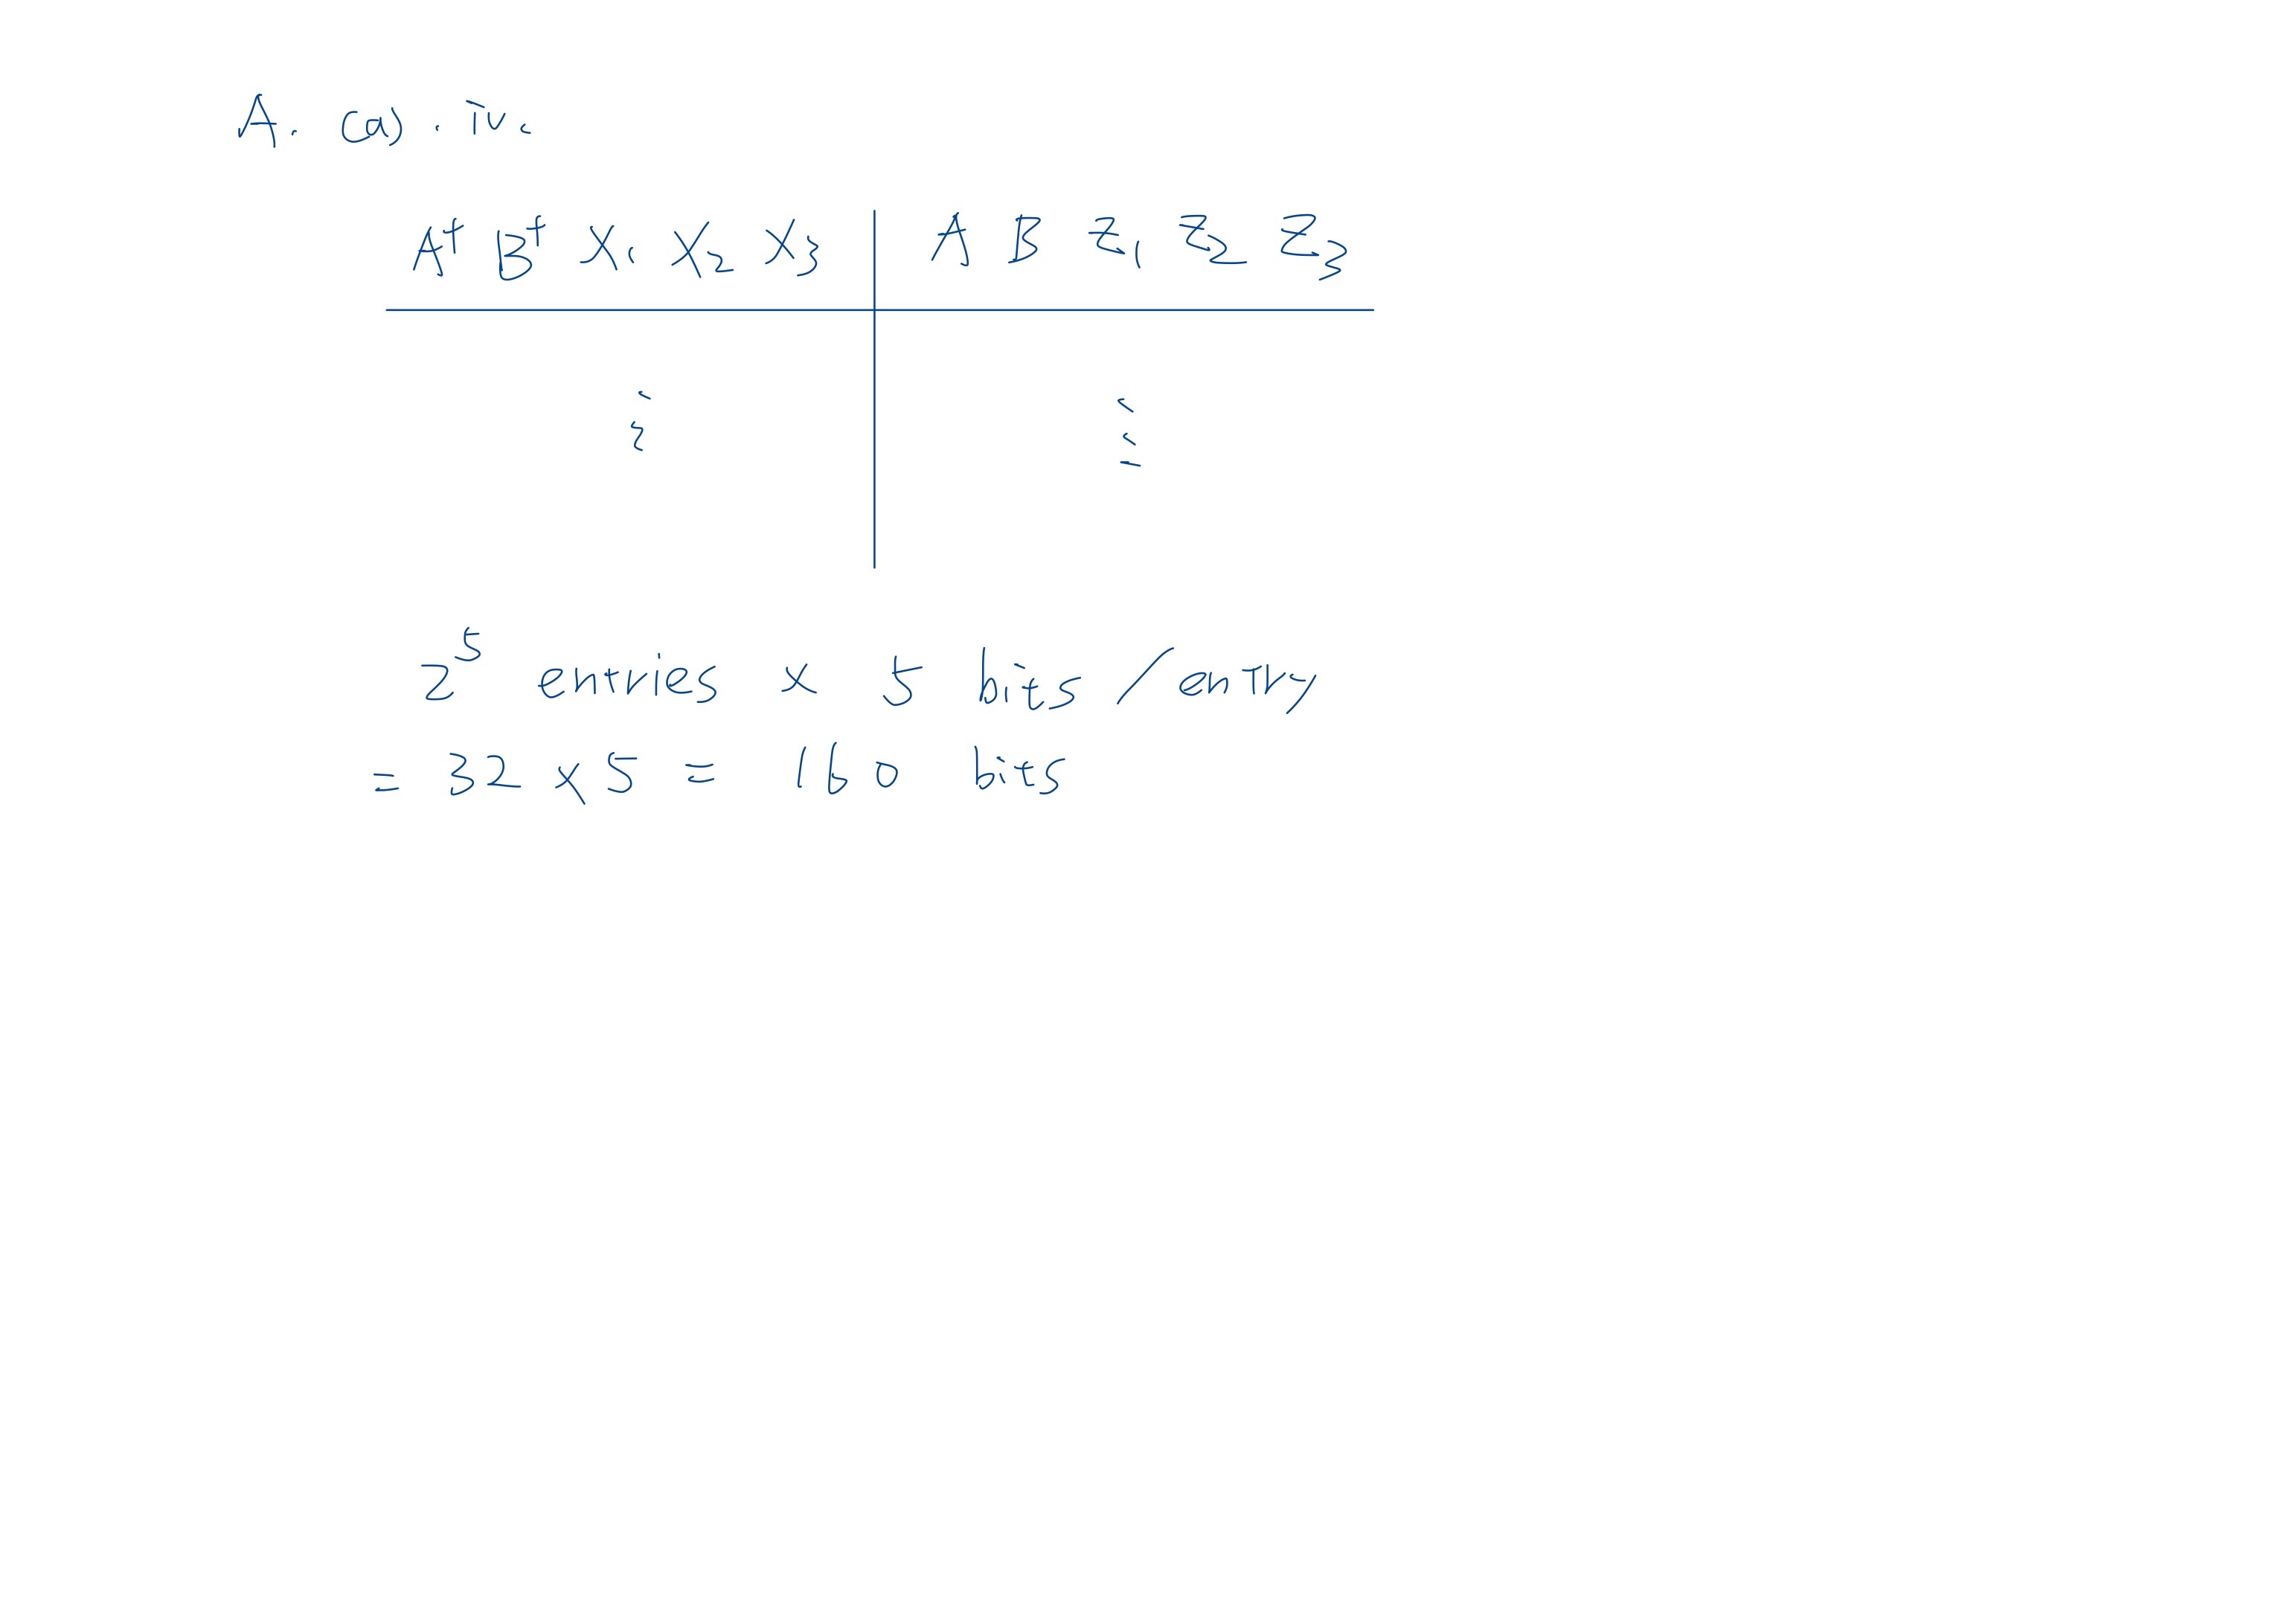 A. (a). iv.
A⁺ B⁺ X₁ X₂ X₃ A B Z₁ Z₂ Z₃
⋮ ⋮
2⁵ entries × 5 bits / entry
= 32 × 5 = 160 bits